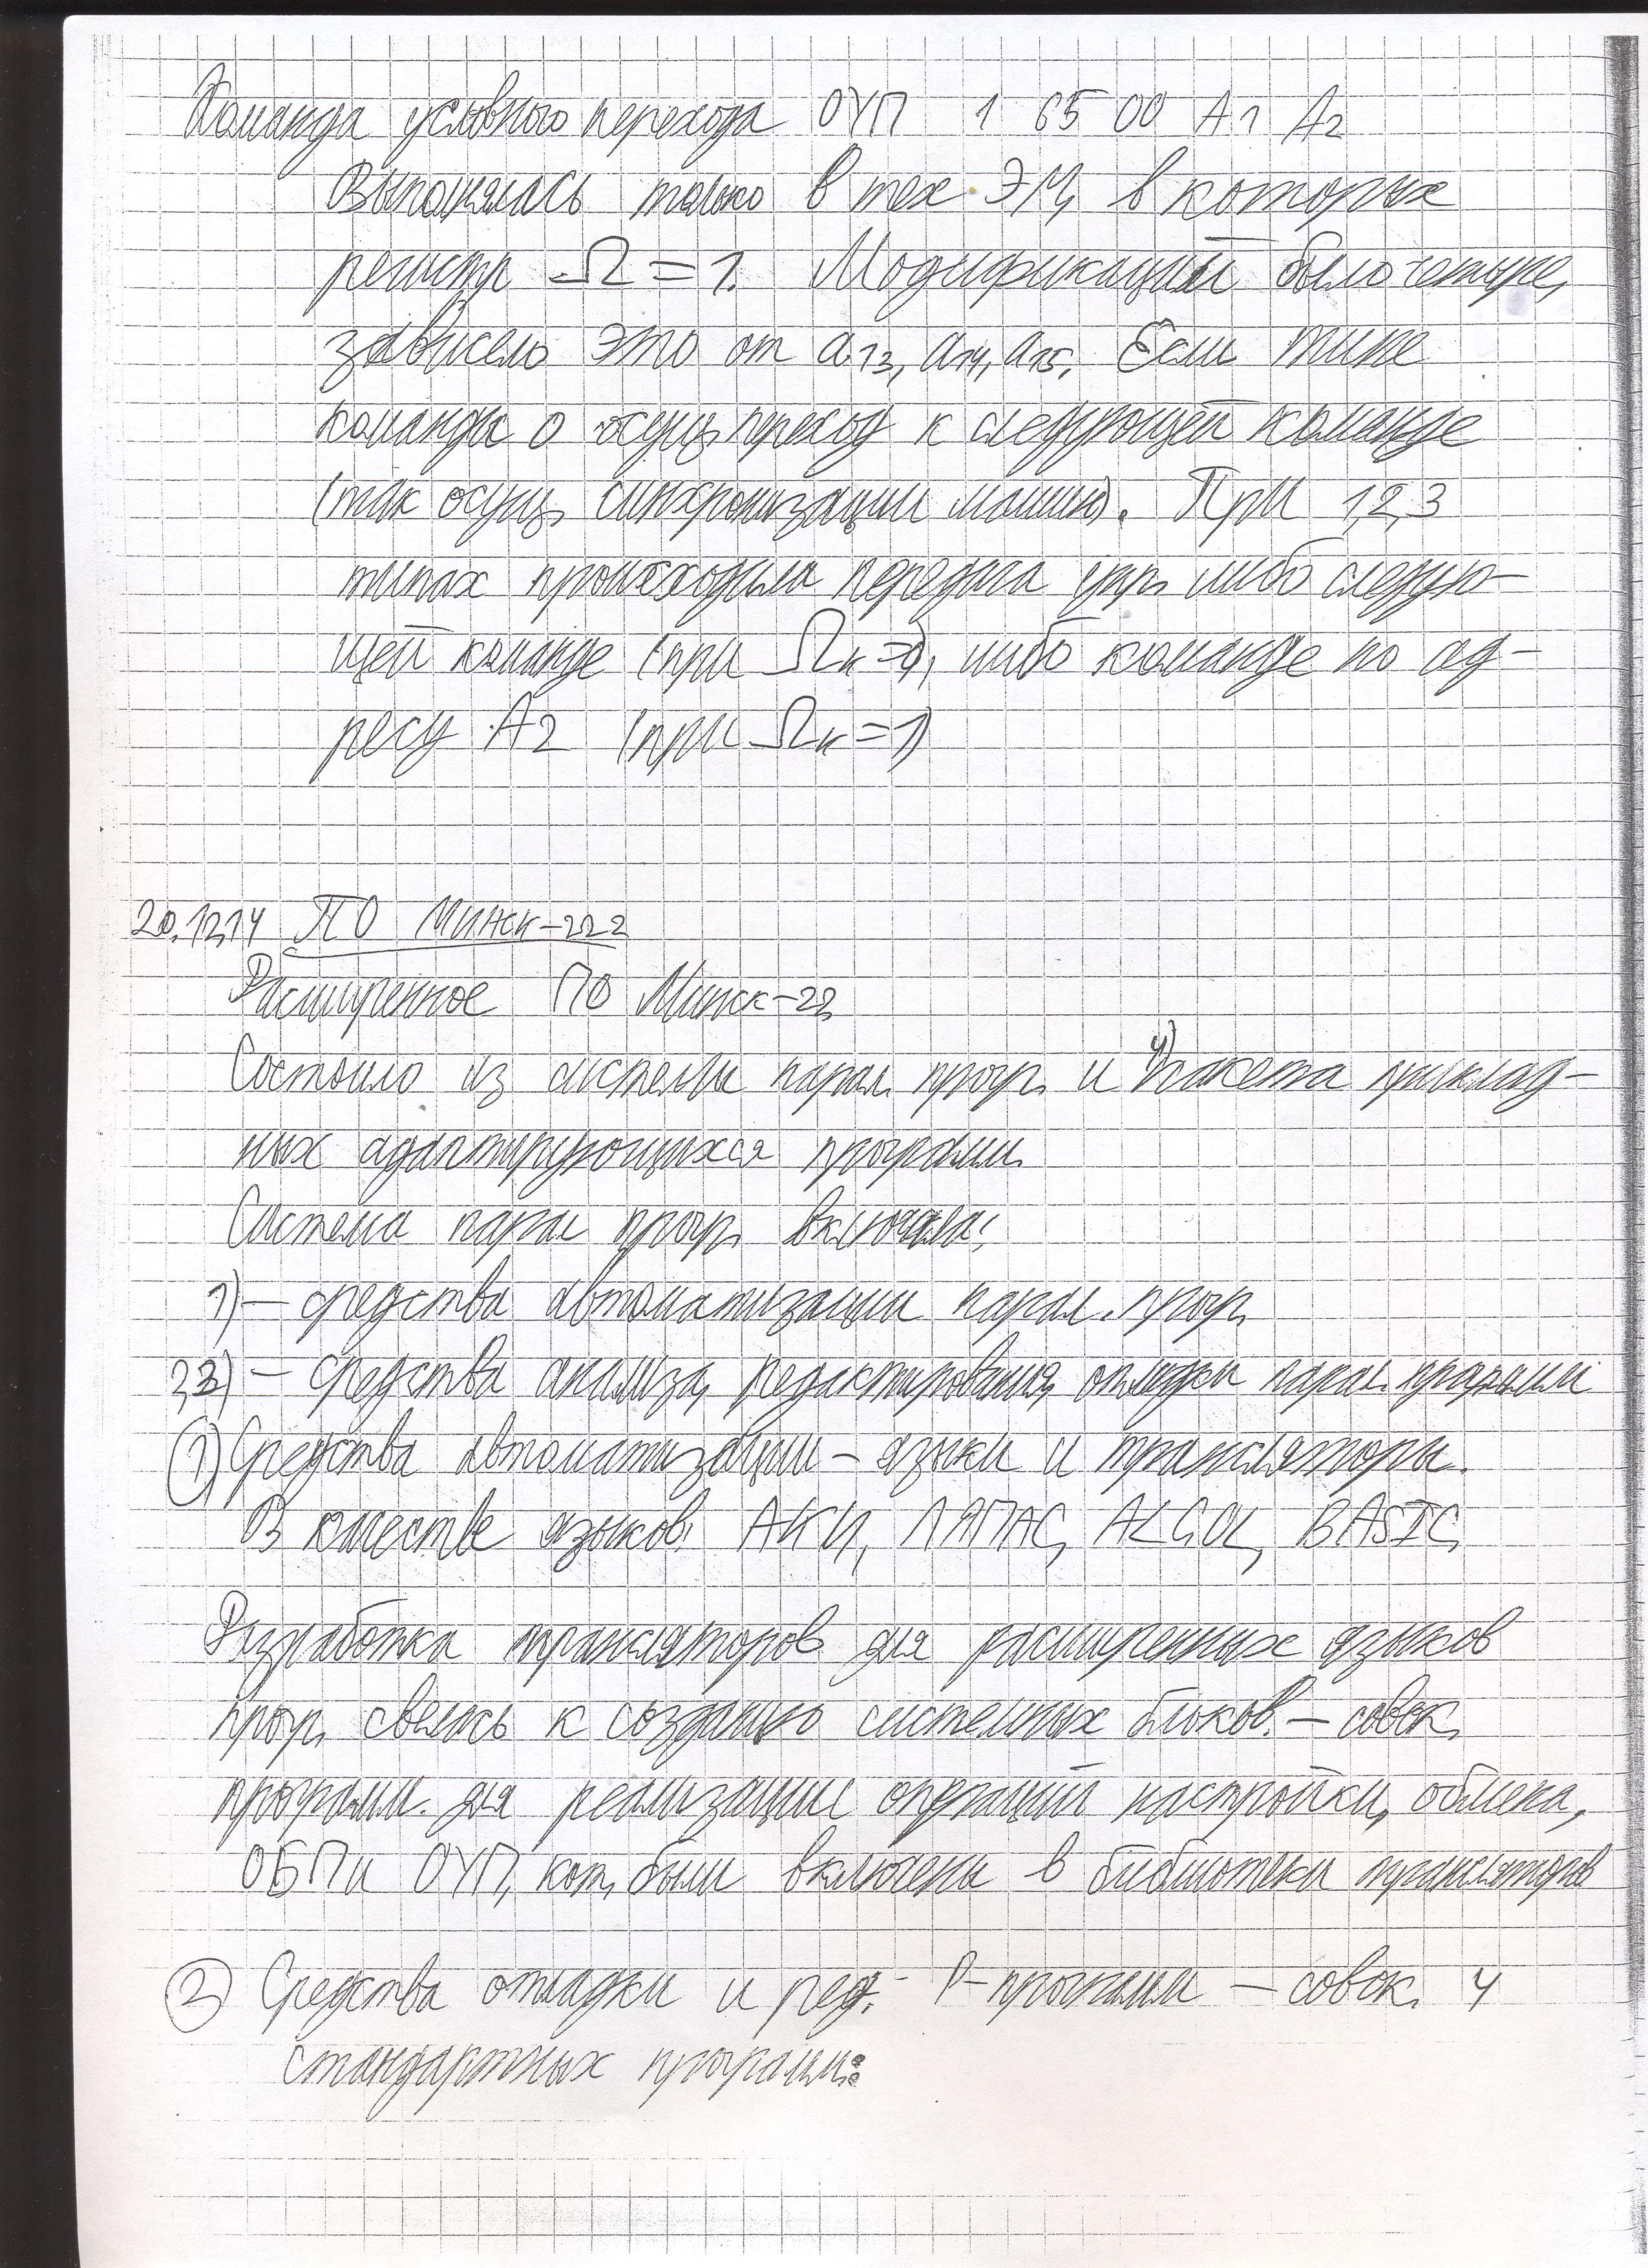 Команда условного перехода ОУП 1 65 00 А1 А2
Выполнялась только в тех ЭМ, в которых
регистр Ω = 1. Модификаций было четыре,
зависело это от a13, a14, a15. Если типе
команды 0 осущ. переход к следующей команде
(так осущ. синхронизации машин). При 1,2,3
типах происходила передача упр. либо следую-
щей команде (при Ωк=0), либо команде по ад-
ресу А2 (при Ωк=1)
20.12.14 ПО Минск-222
Расширенное ПО Минск-22,
Состояло из системы парал. прогр. и 4) пакета приклад-
ных адаптирующихся программ.
Система парал прогр. включала:
1) – средства автоматизации парал. прогр.
2,3) – средства анализа, редактирования, отладки парал. программ
(1) Средства автоматизации – языки и трансляторы.
В качестве языков: АКИ, ЛЯПАС, ALGOL, BASIC,
Разработка трансляторов для расширенных языков
прогр. свелась к созданию системных блоков. – совок.
программ. для реализации операций настройки, обмена,
ОБП и ОУП, кот. были включены в библиотеки трансляторов
(2) Средства отладки и ред. P-программ – совок. 4
стандартных программ: